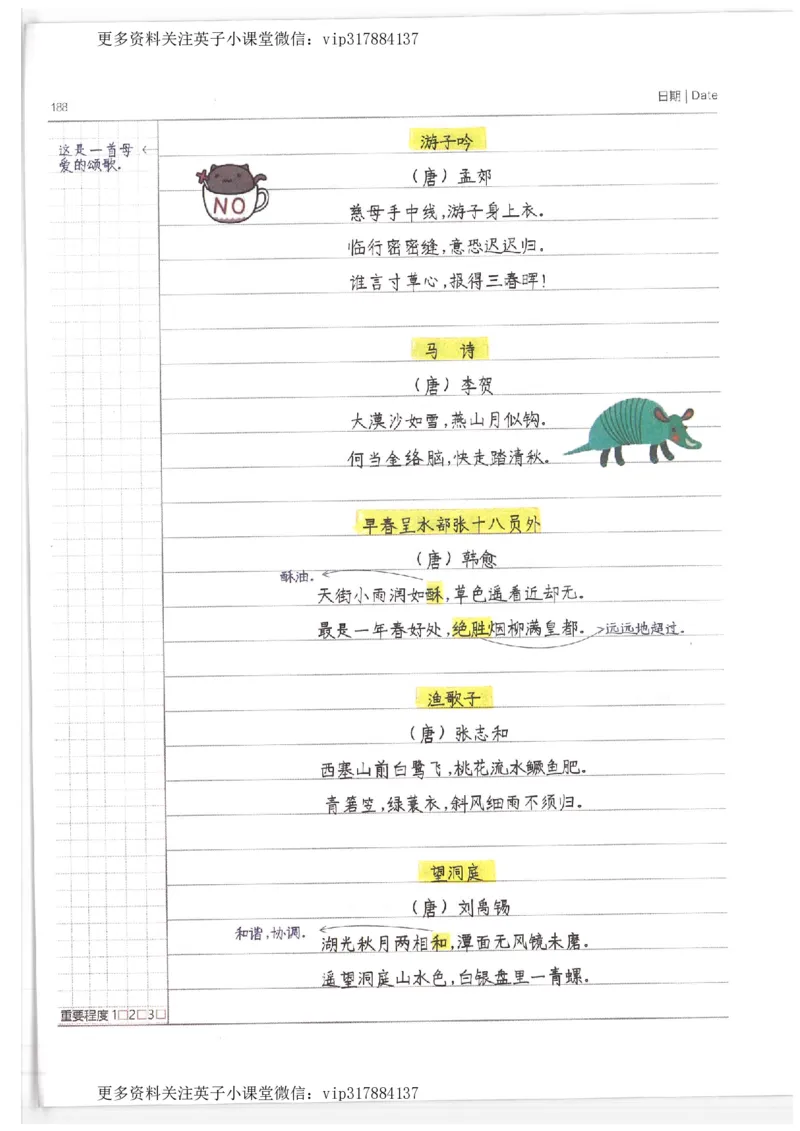 更多资料关注英子小课堂微信：vip317884137
188
日期 | Date
这是一首母
爱的颂歌.
NO
游子吟
（唐）孟郊
慈母手中线,游子身上衣.
临行密密缝,意恐迟迟归.
谁言寸草心,报得三春晖!
马 诗
（唐）李贺
大漠沙如雪,燕山月似钩.
何当金络脑,快走踏清秋.
早春呈水部张十八员外
（唐）韩愈
酥油.
天街小雨润如酥,草色遥看近却无.
最是一年春好处,绝胜烟柳满皇都.
远远地超过.
渔歌子
（唐）张志和
西塞山前白鹭飞,桃花流水鳜鱼肥.
青箬笠,绿蓑衣,斜风细雨不须归.
望洞庭
（唐）刘禹锡
和谐,协调.
湖光秋月两相和,潭面无风镜未磨.
遥望洞庭山水色,白银盘里一青螺.
重要程度 1□2□3□
更多资料关注英子小课堂微信：vip317884137